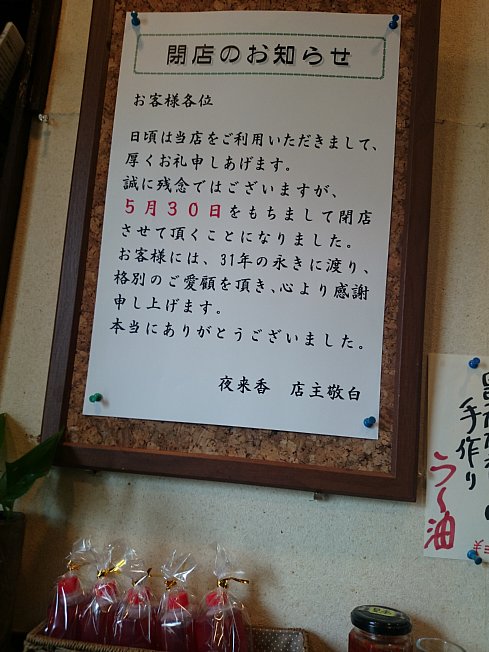 閉店のお知らせ
お客様各位
日頃は当店をご利用いただきまして、
厚くお礼申しあげます。
誠に残念ではございますが、
5月30日をもちまして閉店
させて頂くことになりました。
お客様には、31年の永きに渡り、
格別のご愛顧を頂き、心より感謝
申し上げます。
本当にありがとうございました。
夜来香 店主敬白
手作り
ラー油